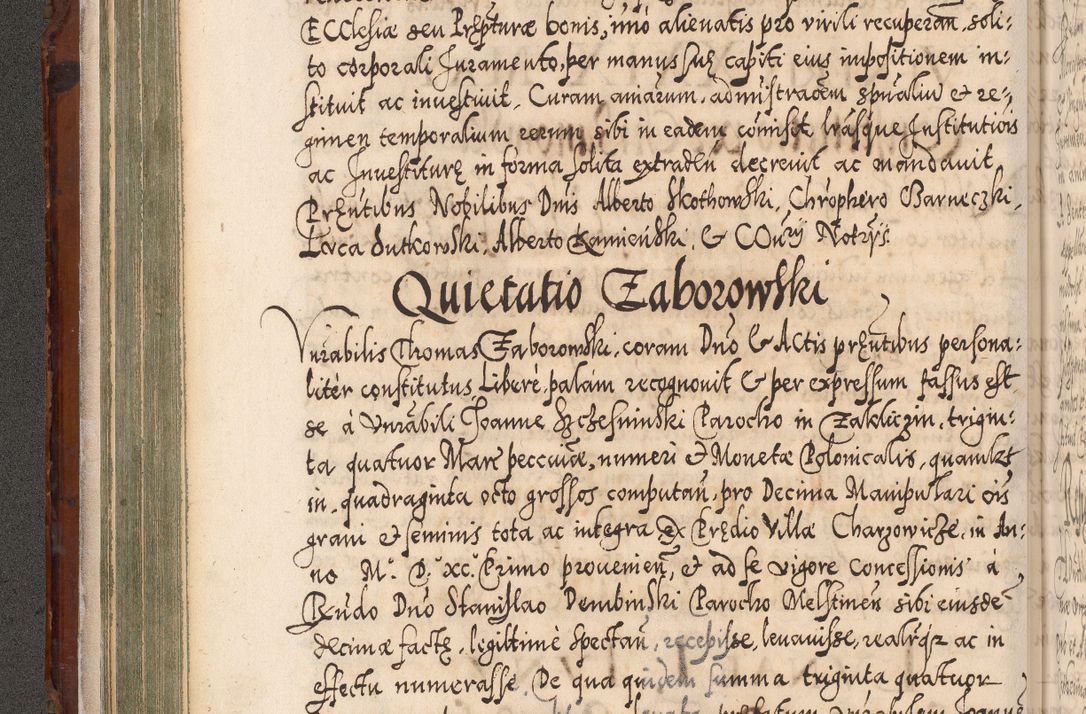 ECClesiæ seu Præpturæ bonis, imò alienatis pro virili recuperan̄, soli:
to corporali Juramento, per manus suę capiti eius impositionem in:
stituit ac investivit, Curam aniarum, administracem̄ spūaliū et re:
gimen temporalium rerum sibi in eadem cōmisit, lrāsque Institutiōis
ac Investiturę in forma solita extradēn decrevit ac mandavit,
Præntibus Nobilibus Dn̄is Alberto Skothowski, Chrōphero Barneczki,
Luca Sutkowski, Alberto Kamieński, & COūrÿ Notrÿs.
Quietatio Zaborowski
Vnrābilis Thomas Zaborowski, coram Dn̄o & Actis præn̄tibus persona:
liter constitutus, Liberè, palàm recognovit & per expressum fassus est
se à Vnrābili Joanne Szczesniński Parocho in Zakliczin, trigin:
ta quatuor Marc̄ peccuniæ, numeri et Monetæ Polonicalis, quamlꝫt
in quadraginta octo grossos computan̄, pro Decima Manipulari oīs
grani et seminis tota ac integra ex Prædio Villæ Charzowicze, in An:
no M.º D.º XC.º Primo provenien̄, et ad se vigore Concessionis à
Rn̄do Dn̄o Stanislao Dembiński Parocho Melstinen̄ sibi eiusdē
decimæ factę, legittimè spectan̄, recepisse, levavisse, realr̄qꝫ ac in
effectu numerasse, De qua quidem summa triginta quatuor